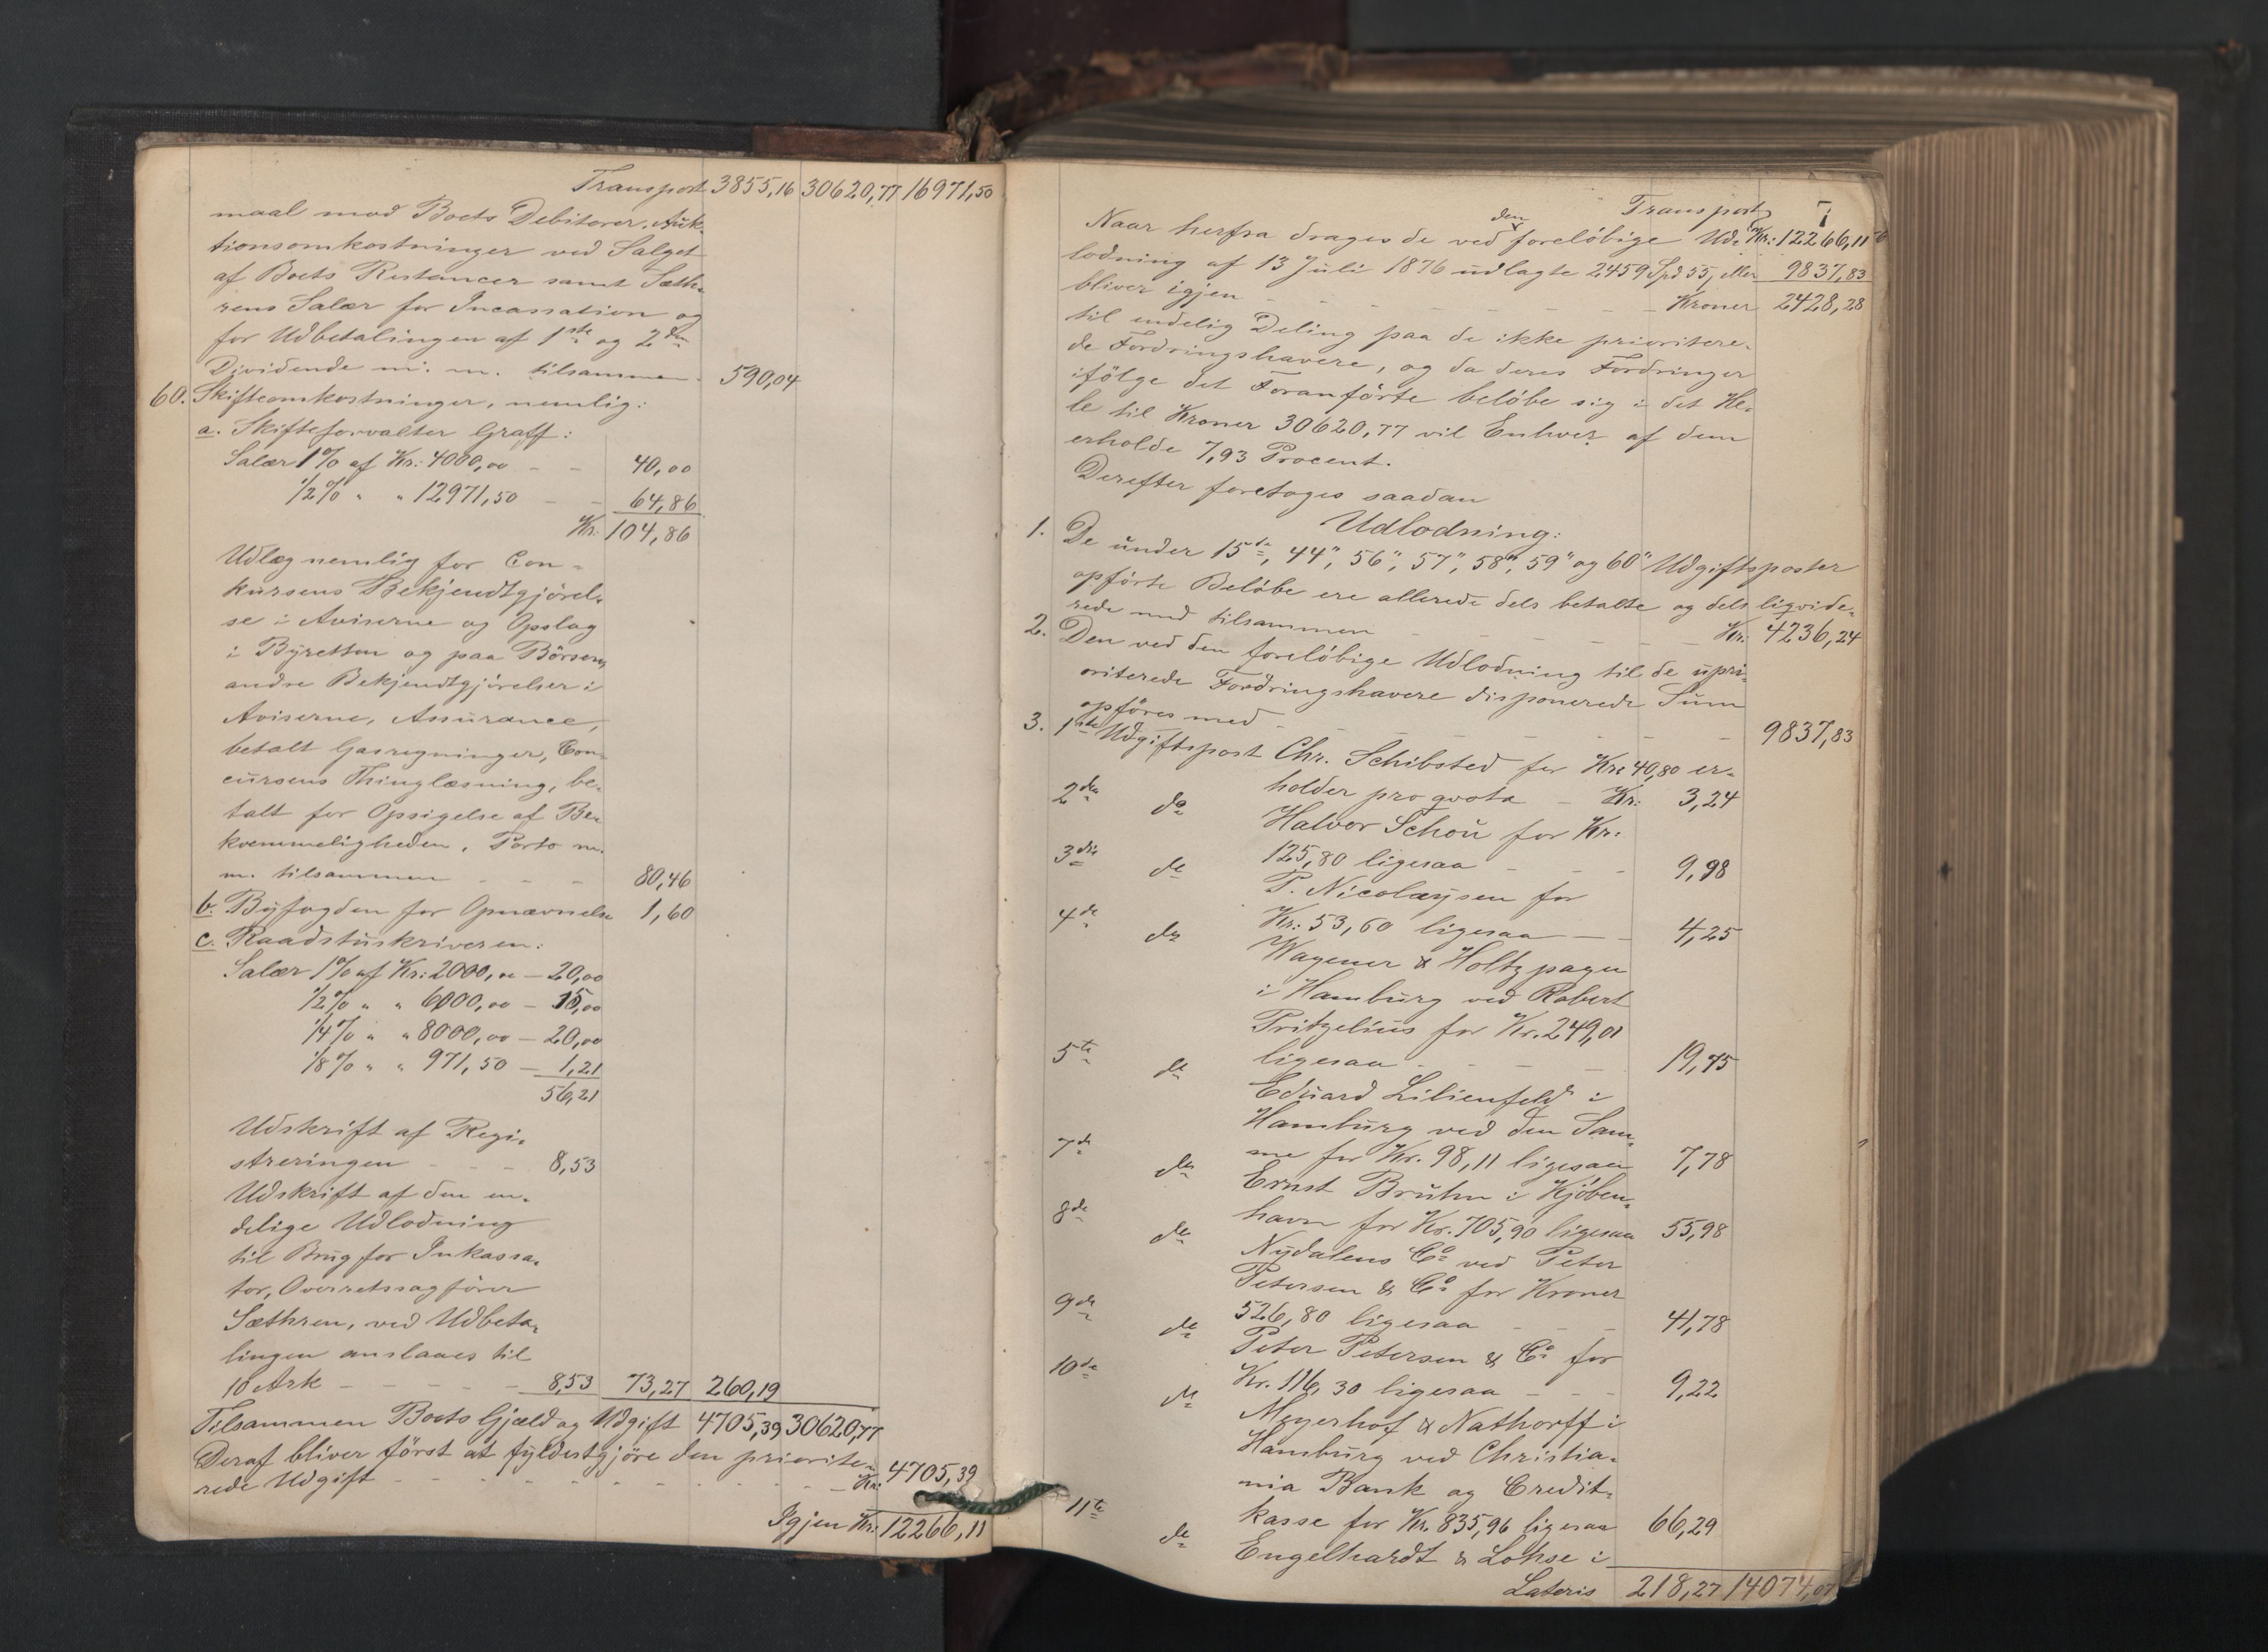 Transport 3855,16 30620,77 16971,50
maal mod Boets Debitorer, Auk-
tionsomkostninger ved Salget
af Boets Restancer samt Sæth-
rens Salær for Incassation og
for Udbetalingen af 1ste og 2den
Dividende m. m. tilsammen 590,04
60. Skifteomkostninger, nemlig:
a. Skifteforvalter Graff:
Salær 1% af Kr: 4000,00 - - 40,00
1/2% " " 12971,50 - - 64,86
Kr. 104,86
Udlæg nemlig for Con-
kursens Bekjendtgjörel-
se i Aviserne og Opslag
i Byretten og paa Börsen,
andre Bekjendtgjörelser i
Aviserne, Assurance,
betalt Gasregninger, Con-
cursens Thinglæsning, be-
talt for Opsigelse af Be-
kvemmeligheden, Porto m.
m. tilsammen - - - 80,46
b. Byfogden for Opnævnelse 1,60
c. Raadstuskriveren:
Salær 1% af Kr: 2000,00 - 20,00
1/2% " " 6000,00 - 15,00
1/4% " " 8000,00 - 20,00
1/8% " " 971,50 - 1,21
56,21
Udskrift af Regi-
streringen - - - 8,53
Udskrift af den en-
delige Udlodning
til Brug for Inkassa-
tor, Overretssagförer
Sæthren, ved Udbeta-
lingen anslaaes til
10 Ark - - - - 8,53 73,27 260,19
Tilsammen Boets Gjæld og Udgift 4705,39 30620,77
Deraf bliver först at fyldestgjöre den priorite-
rede Udgift - - - - - - - - Kr: 4705,39
Igjen Kr: 12266,11
7
Transport Kr: 12266,11
Naar herfra drages de ved den foreløbige Ud-
lodning af 13 Juli 1876 udlagte 2459 Spd 55, eller 9837,83
bliver igjen - - - - - - Kroner 2428,28
til endelig Deling paa de ikke prioritere-
de Fordringshavere, og da deres Fordringer
ifölge det Foranförte belöbe sig i det He-
le til Kroner 30620,77 vil Enhver af dem
erholde 7,93 Procent.
Derefter foretoges saadan
Udlodning:
1. De under 15de, 44", 56", 57", 58", 59" og 60" Udgiftsposter
opförte Belöbe ere allerede dels betalte og dels liqvide-
rede med tilsammen - - - - - Kr: 4236,24
2. Den ved den forelöbige Udlodning til de upri-
oriterede Fordringshavere disponerede Sum
opföres med - - - - - - - 9837,83
3. 1ste Udgiftspost Chr. Schibsted for Kr: 40,80 er-
holder pro qvota - Kr: 3,24
2den do Halvor Schou for Kr:
125,80 ligesaa - - - 9,98
3die do P. Nicolaysen for
Kr: 53,60 ligesaa - - 4,25
4de do Wagener & Holtzpagen
i Hamburg ved Robert
Fritzelius for Kr. 249,01
ligesaa - - - - 19,75
5te do Eduard Lilienfeld i
Hamburg ved den Sam-
me for Kr. 98,11 ligesaa 7,78
7de do Ernst Bruhn i Kjöben-
havn for Kr. 705,90 ligesaa 55,98
8de do Nydalens Co ved Peter
Petersen & Co for Kroner
526,80 ligesaa - - - 41,78
9de do Peter Petersen & Co for
Kr. 116,30 ligesaa - - - 9,22
10de do Meyerhof & Nathorff i
Hamburg ved Christia-
nia Bank og Credit-
kasse for Kr. 835,96 ligesaa 66,29
11te do Engelhardt & Lohse i
Lateris 218,27 14074,07